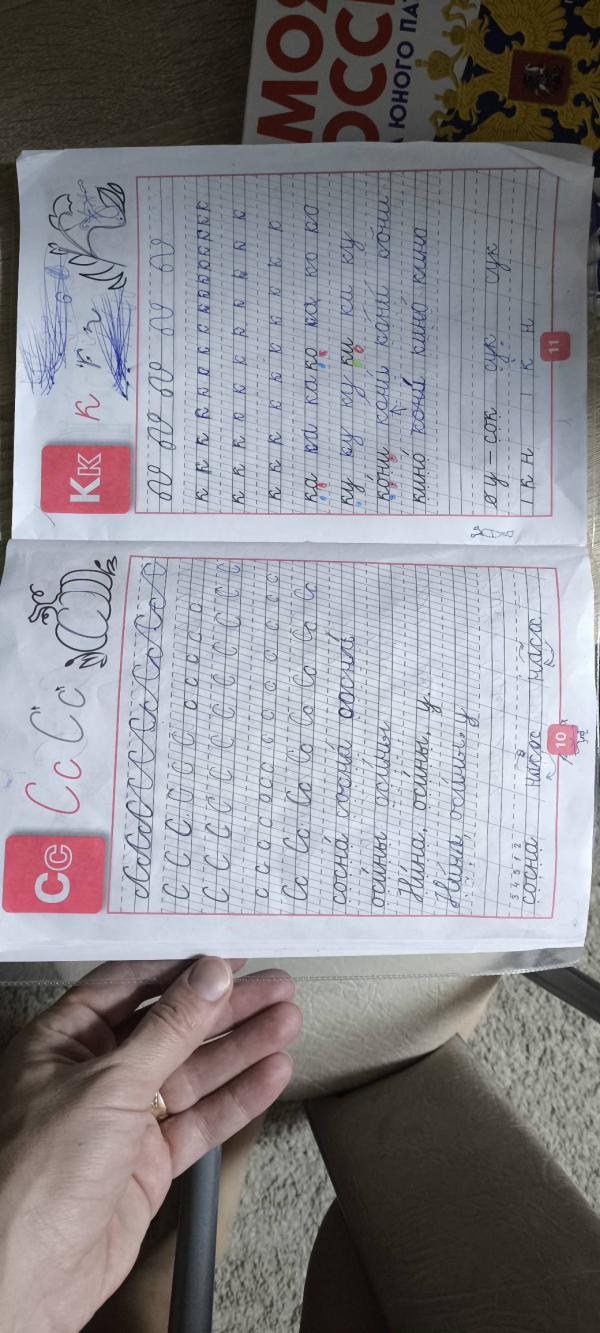 МОЯ
РОССИ
ЮНОГО ПАТ
Сс
С с С с
С С С С С С С С С С С
С С С С С С С С С С С
с с с с с с с с с с с
Сс Сс Сс Сс Сс Сс Сс
сосна́ сосна́ сосна́
оси́ны осины
Ни́на, оси́ны, у
Нина, осины, у
3 4 5 1 2
сосна насос насо
10
Кк
К
к к к к к к к к к к к к
к к к к к к к к к
к к к к к к к к к
ка ка ка ко ка ко ко
ку ку ку ки ки ку
ко́ни кони кони кони
кино́ кони кино кино
у – сок сук сук
I К Н I К Н
11